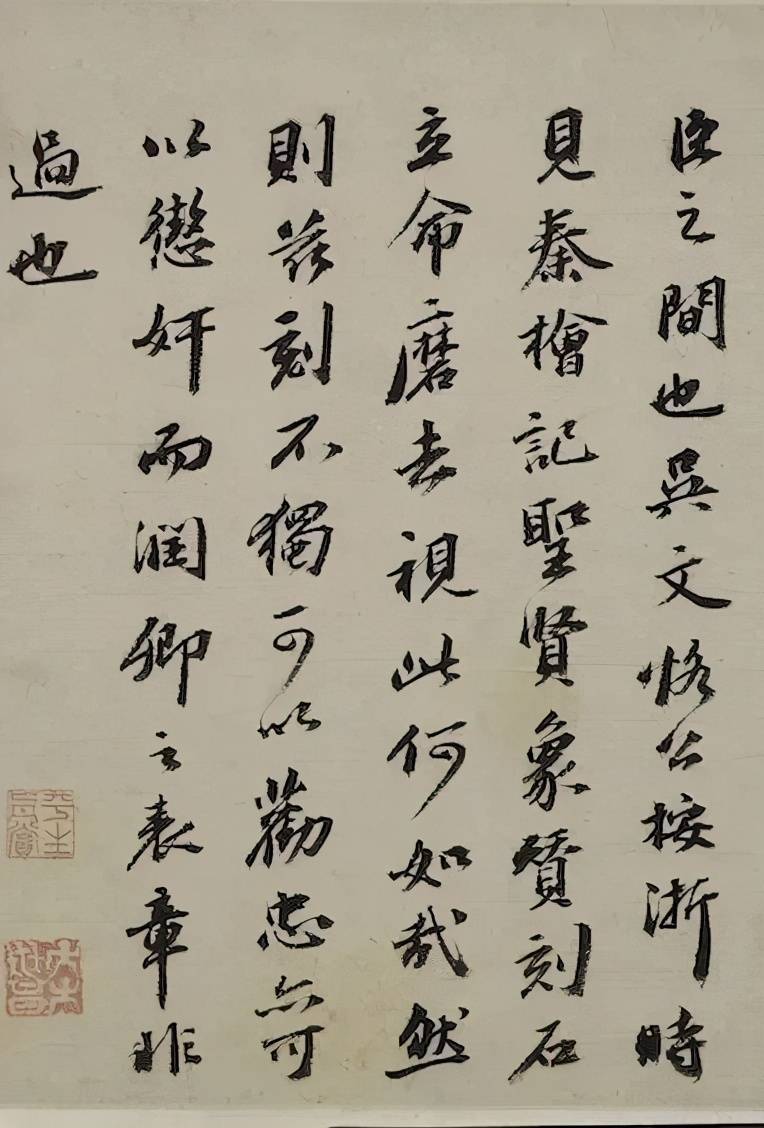 臣之間也吳文恪公按浙時
見秦檜記聖賢象贊刻石
立命磨去視此何如哉然
則茲刻不獨可以勸忠亦可
以懲奸而潤卿之表章非
過也